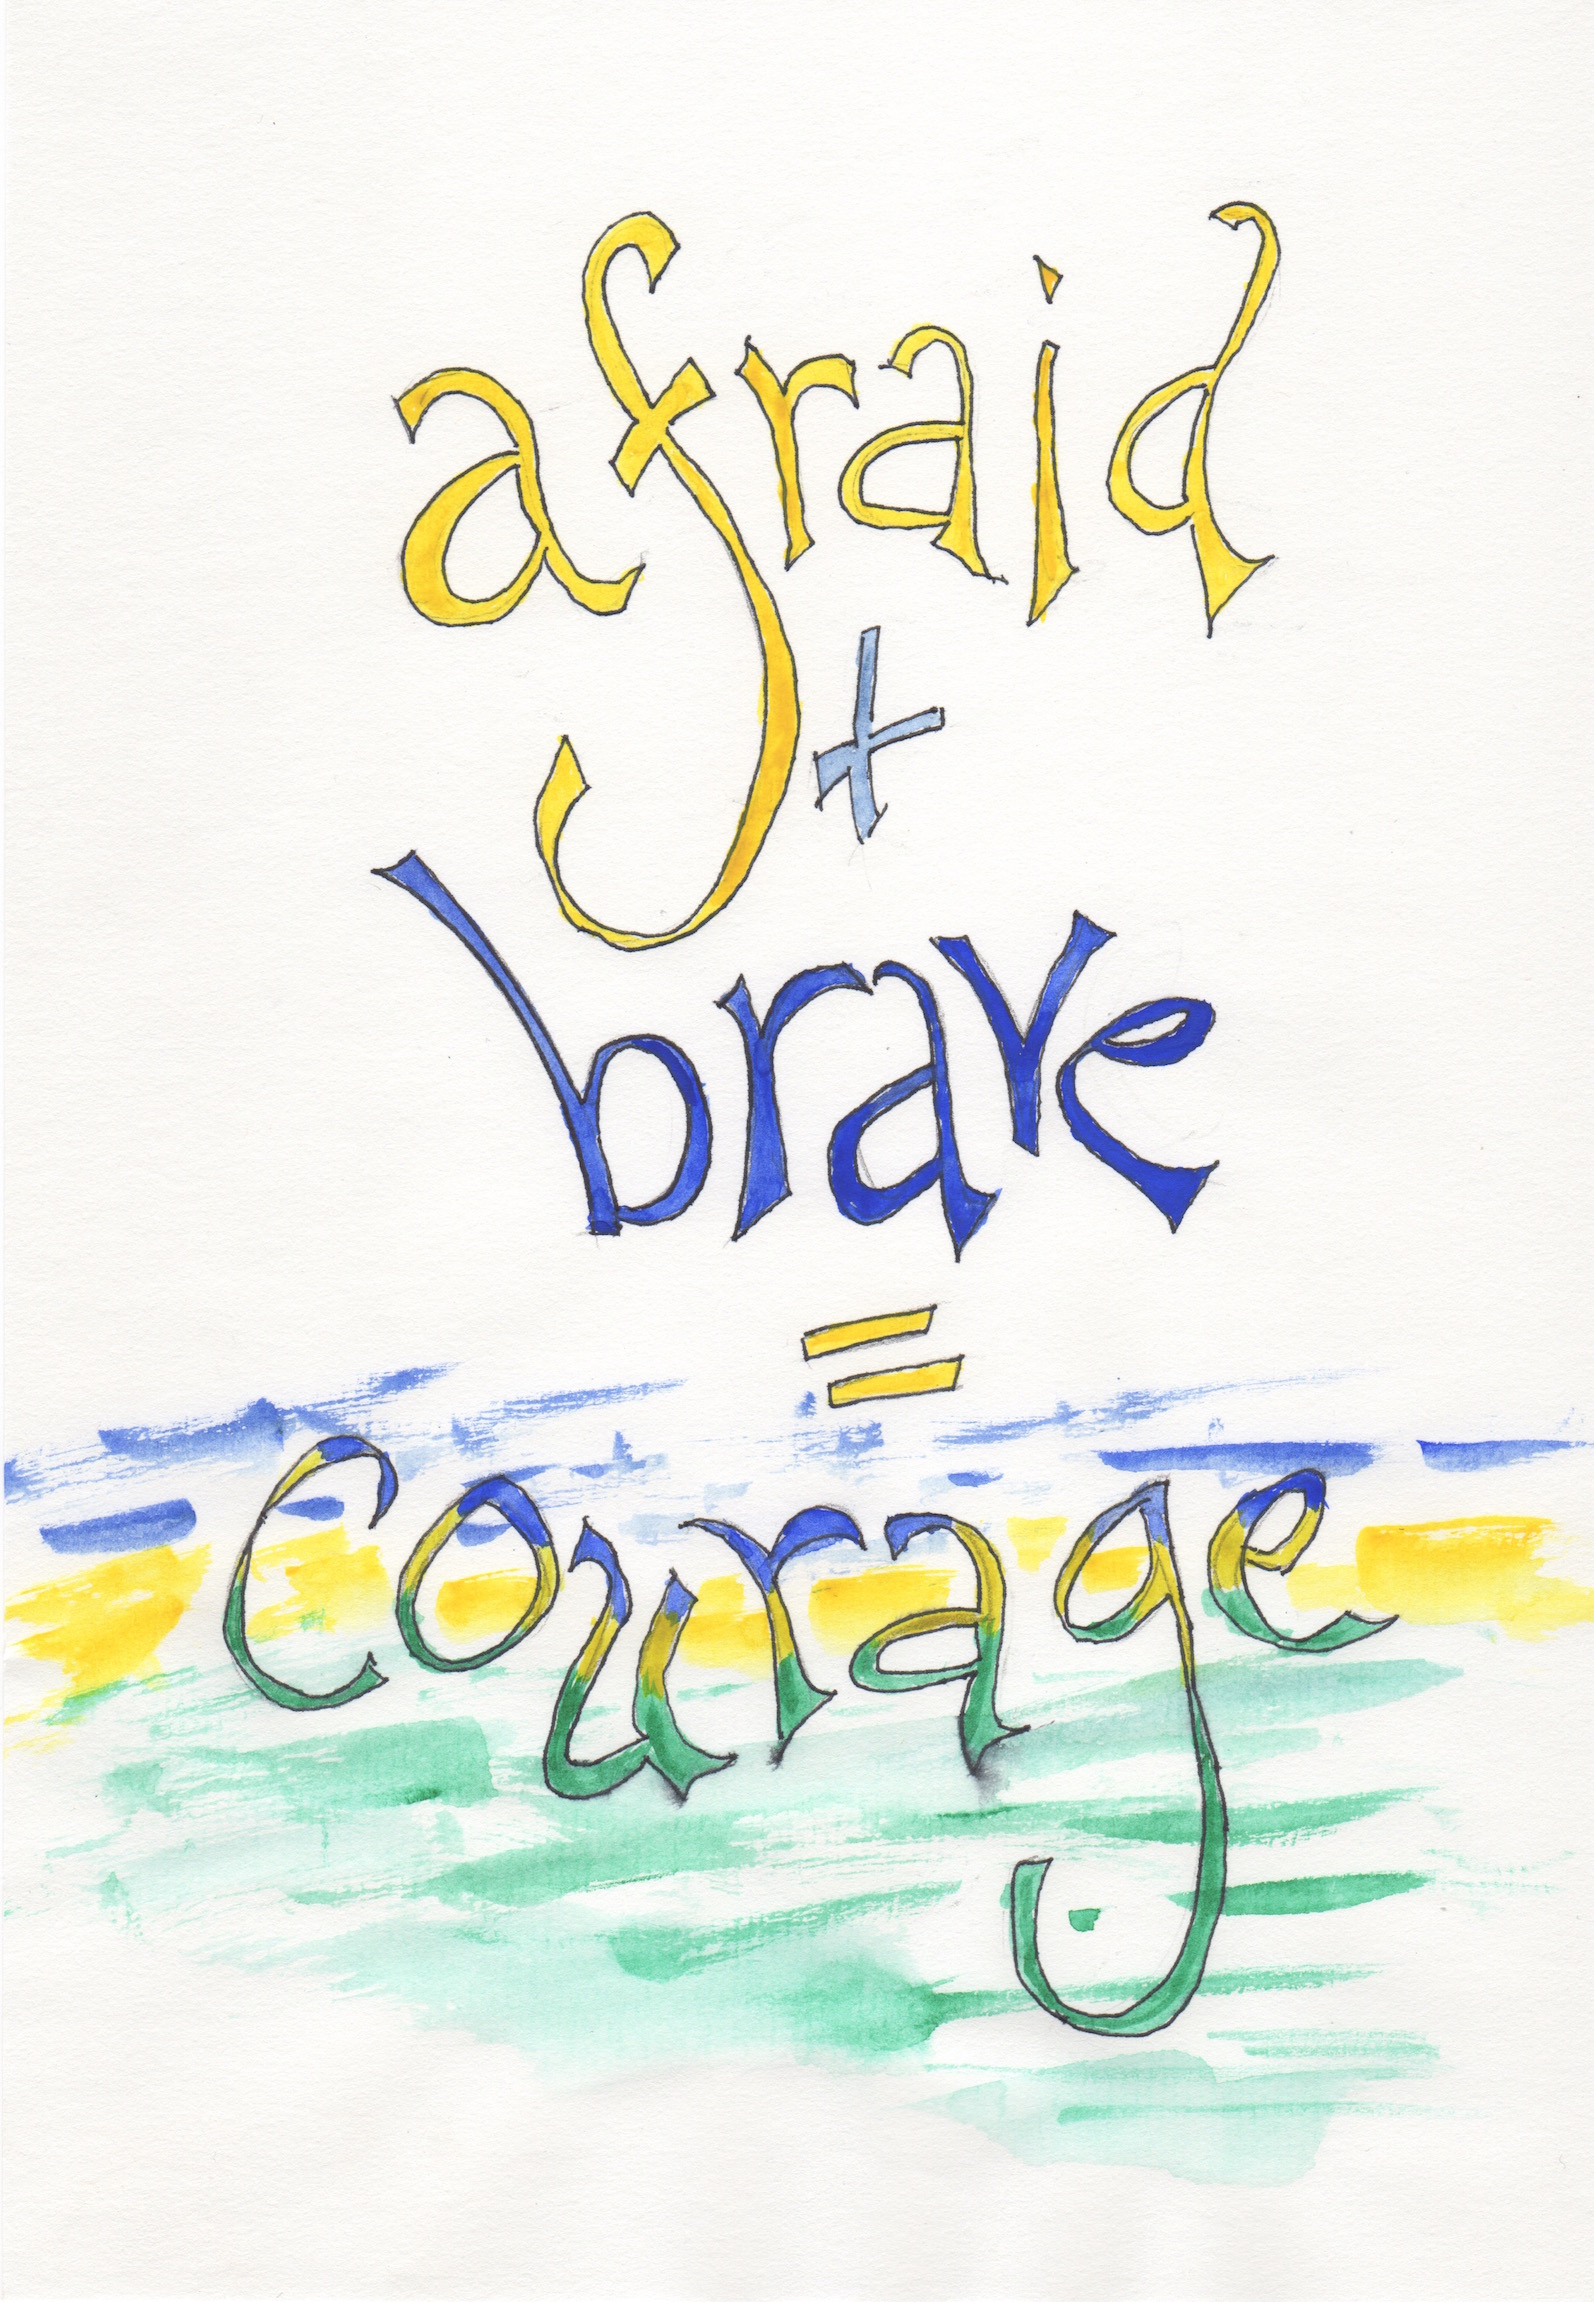 afraid
+
brave
=
courage